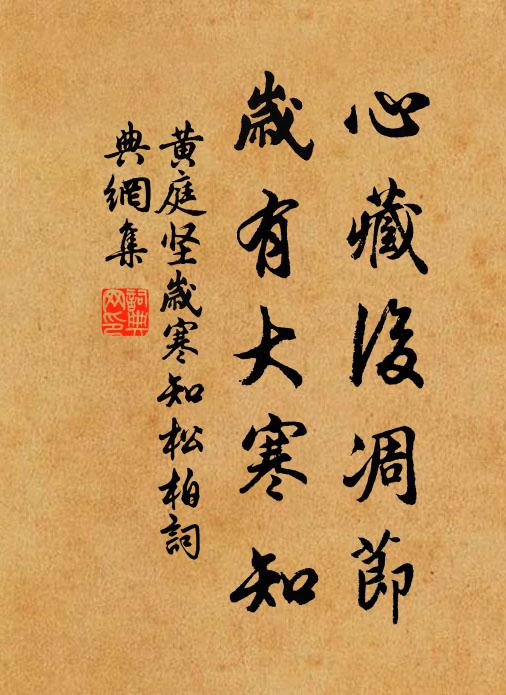 心藏後凋節
歲有大寒知
黃庭坚歲寒知松柏詞
典網集
詞典
网印